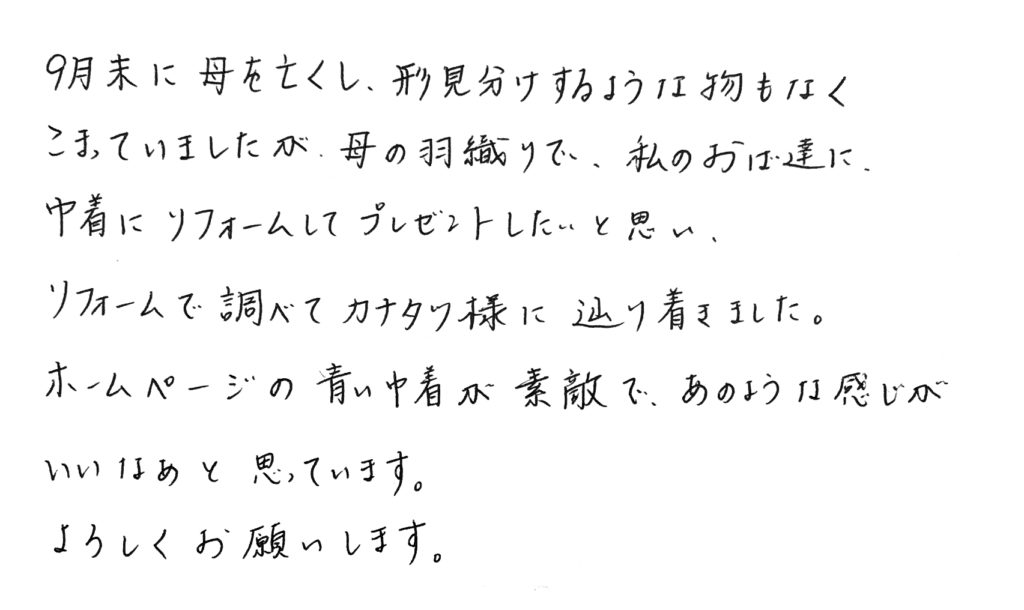 9月末に母を亡くし、形見分けするような物もなく
こまっていましたが、母の羽織りで、私のおば達に、
巾着にリフォームしてプレゼントしたいと思い、
リフォームで調べてカナタツ様に辿り着きました。
ホームページの青い巾着が素敵で、あのような感じが
いいなぁと思っています。
よろしくお願いします。